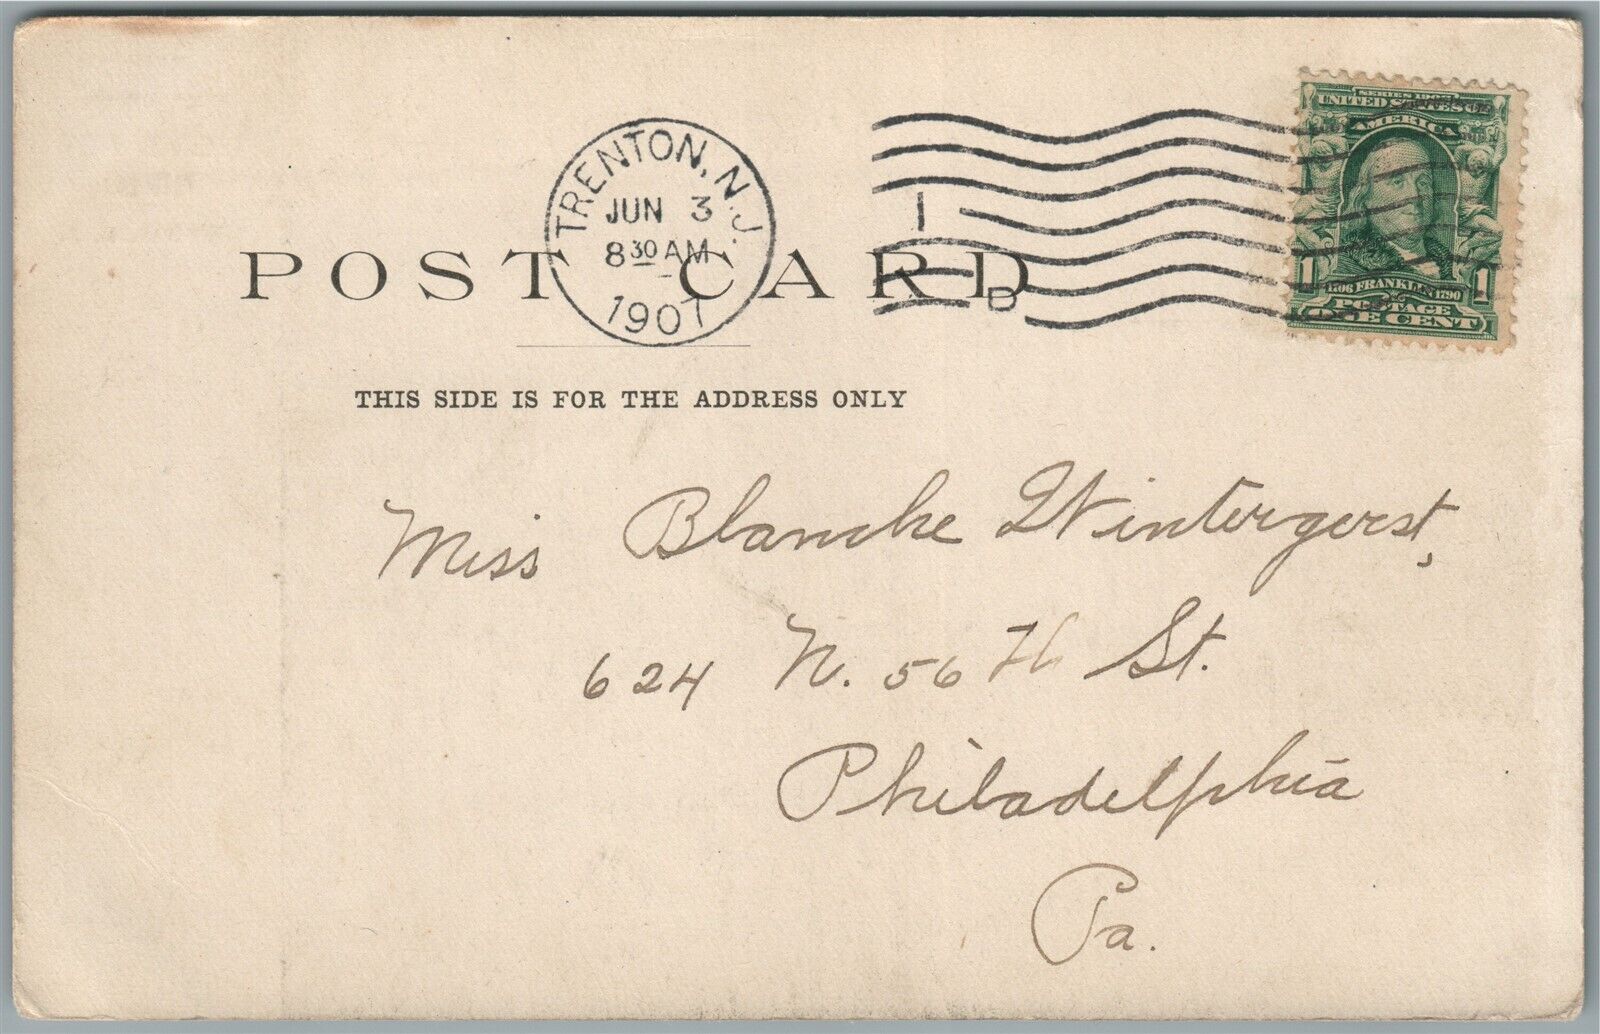 TRENTON, N.J.
JUN 3
8 30 AM
1907
1
D
SERIES 1902
UNITED STATES OF
AMERICA
1 1
1706 FRANKLIN 1790
POSTAGE
ONE CENT
POST CARD
THIS SIDE IS FOR THE ADDRESS ONLY
Miss Blanche Wintergerst,
624 N. 56 th St.
Philadelphia
Pa.